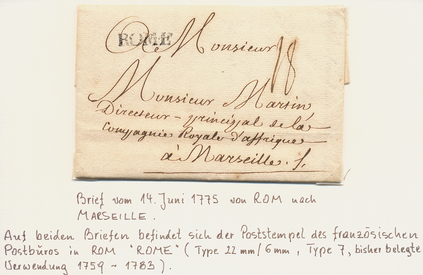 ROME
A Monsieur
18
Monsieur Martin
Directeur - principal de la
Compagnie Royale d'affrique
à Marseille ./.
Brief vom 14. Juni 1775 von ROM nach
MARSEILLE.
Auf beiden Briefen befindet sich der Poststempel des französischen
Postbüros in ROM "ROME" (Type 22 mm/6 mm, Type 7, bisher belegte
Verwendung 1759 - 1783).